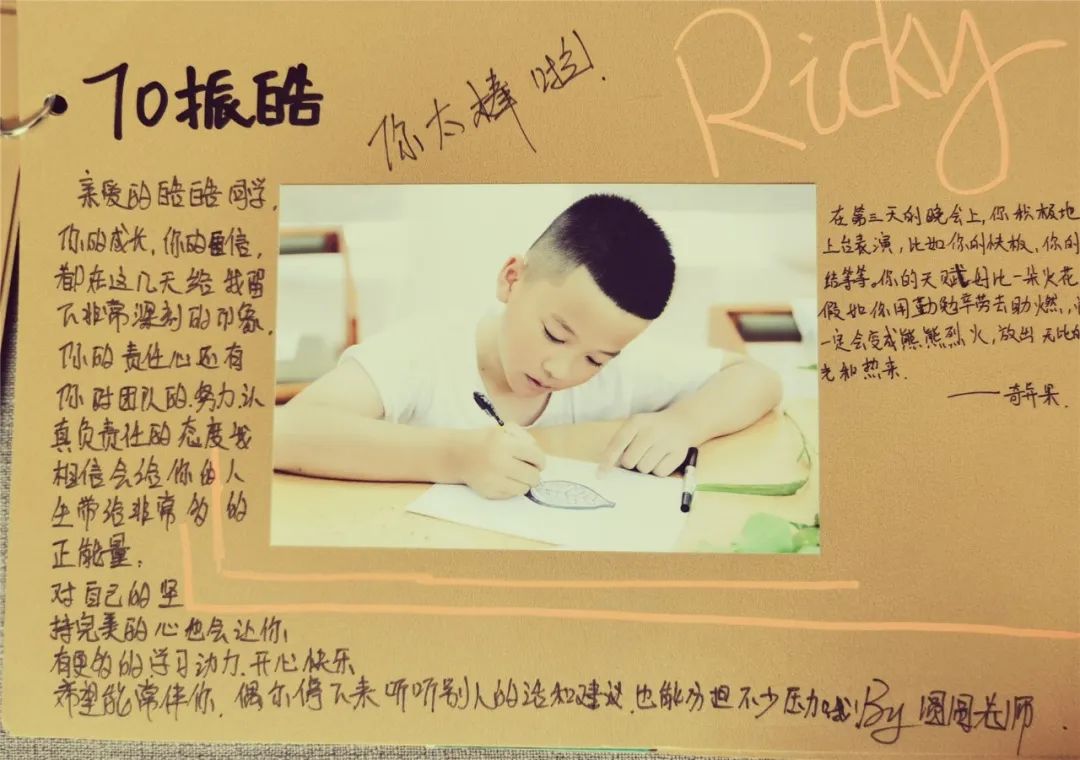 70振皓
你太棒啦!
Ricky
亲爱的皓皓同学,
你的成长,你的自信,
都在这几天给我留
下非常深刻的印象,
你的责任心还有
你对团队的努力认
真负责任的态度我
相信会给你的人
生带给非常多的
正能量.
对自己的坚
持完美的心也会让你
有更多的学习动力.开心快乐
希望能常伴你.偶尔停下来听听别人的话和建议.也能分担不少压力哦!By 圆圆老师
在第三天的晚会上,你积极地
上台表演,比如你的快板,你的
结等等。你的天赋好比一朵火花
假如你用勤勉辛劳去助燃,
一定会变成熊熊烈火,放出无比的
光和热来.
——奇异果.